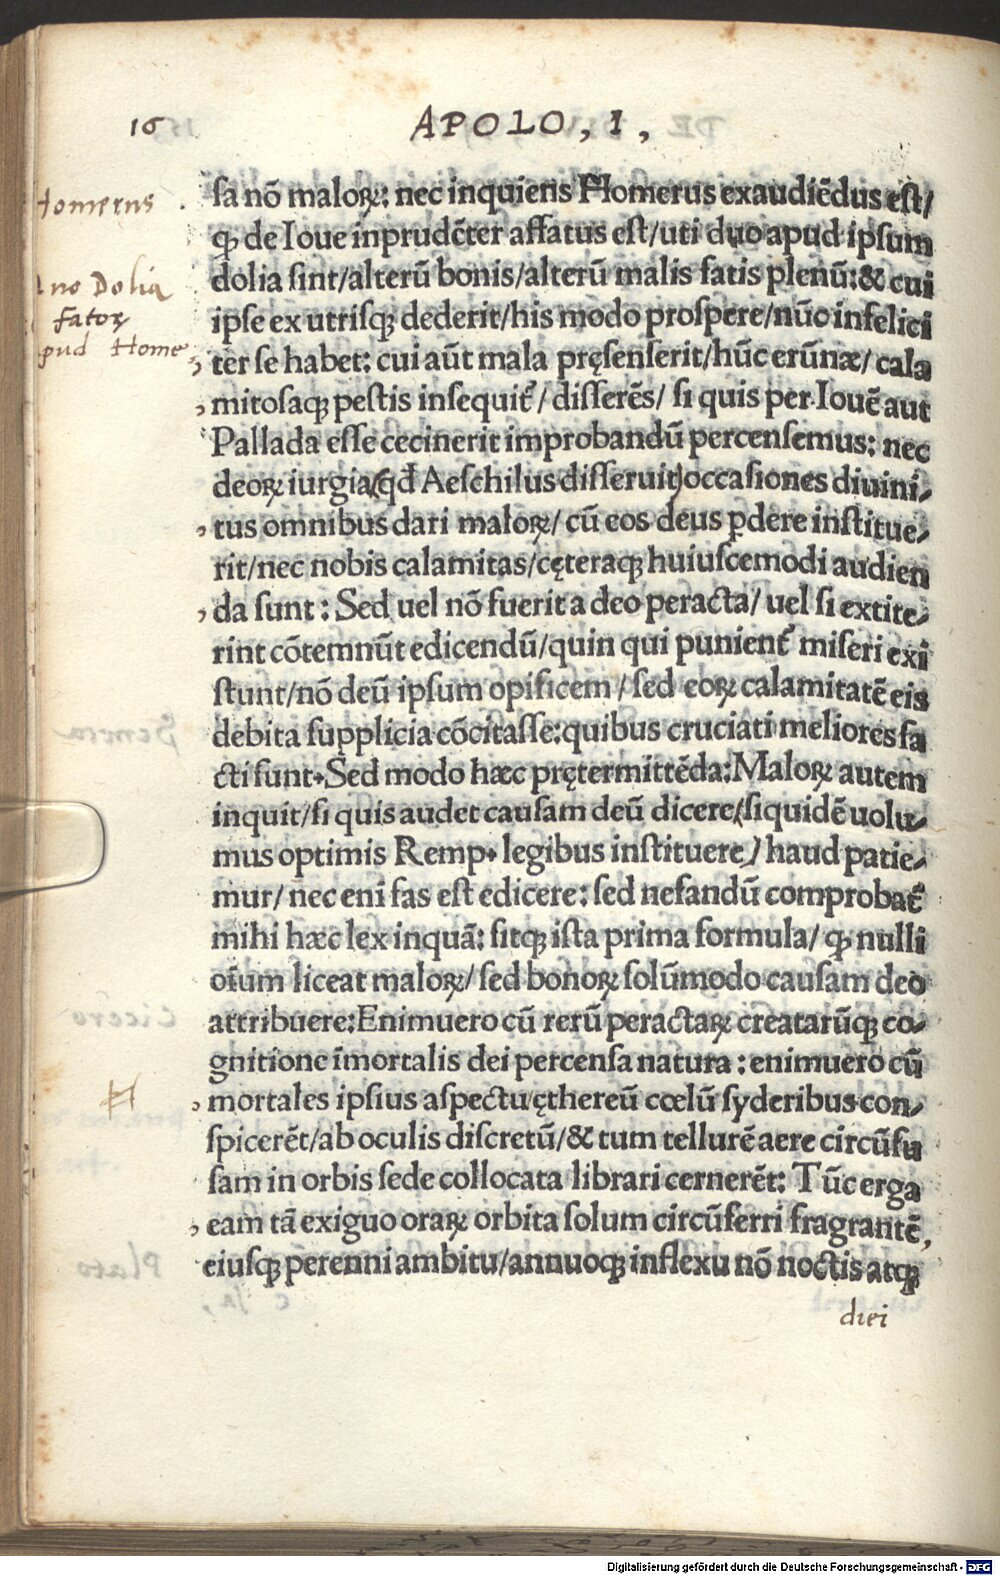 16
APOLO, I,
Homerus
sa nō maloꝝ: nec inquiens Homerus exaudiēdus est/
ꝙ de Ioue inprudēter affatus est/uti duo apud ipsum
dolia sint/alterū bonis/alterū malis fatis plenū:& cui
Dolia
fatoꝝ
ipse ex utrisqꝫ dederit/his modo prospere/nūc infelici
apud Home
ter se habet: cui aūt mala pręsenserit/hūc erūnæ/ cala
mitosaqꝫ pestis insequit᷑/ disserēs/ si quis per Iouē aut
Pallada esse cecinerit improbandū percensemus: nec
deoꝝ iurgia(qđ Aeschilus disseruit)occasiones diuini-
tus omnibus dari maloꝝ/ cū eos deus ꝑdere institue-
rit/nec nobis calamitas/cęteraqꝫ huiuscemodi audien
da sunt: Sed uel nō fuerit a deo peracta/ uel si extite-
rint cōtemnūt edicendū/quin qui punient᷑ miseri exi
stunt/nō deū ipsum opificem/ sed eoꝝ calamitatē eis
debita supplicia cōcitasse:quibus cruciati meliores fa
cti sunt. Sed modo hæc prętermittēda: Maloꝝ autem
inquit/si quis audet causam deū dicere(siquidē uolu-
mus optimis Remp. legibus instituere)/ haud patie-
mur/ nec enī fas est edicere: sed nefandū comprobat᷑
mihi hæc lex inquā: sitqꝫ ista prima formula/ ꝙ nulli
oīum liceat maloꝝ/ sed bonoꝝ solūmodo causam deo
attribuere:Enimuero cū rerū peractaꝝ creatarūqꝫ co-
gnitione īmortalis dei percensa natura: enimuero cū
mortales ipsius aspectu/ęthereū cœlū syderibus con-
spicerēt/ab oculis discretū/& tum tellurē aere circūfu
sam in orbis sede collocata librari cernerēt: Tūc erga
eam tā exiguo oraꝝ orbita solum circūferri fragrantē,
eiusqꝫ perenni ambitu/annuoqꝫ inflexu nō noctis atqꝫ
diei
Digitalisierung gefördert durch die Deutsche Forschungsgemeinschaft - DFG